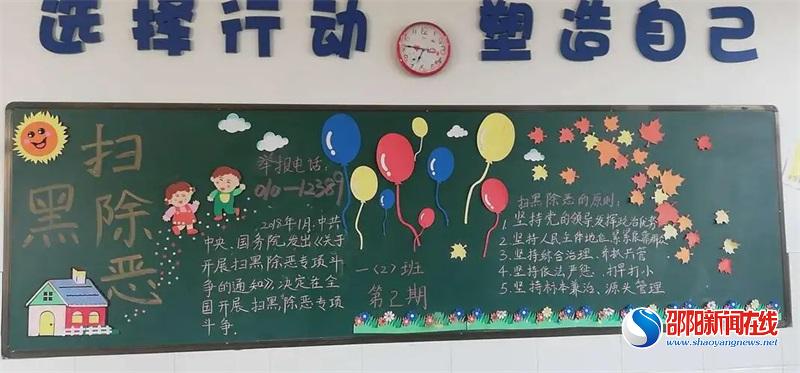 选择行动 塑造自己
扫黑除恶
举报电话:
010-12389
2018年1月,中共
中央、国务院发出《关于
开展扫黑除恶专项斗
争的通知》,决定在全
国开展扫黑除恶专项
斗争。
一(2)班
第2期
扫黑除恶的原则:
1. 坚持党的领导发挥政治优势
2. 坚持人民主体地位,紧紧依靠群众
3. 坚持综合治理、齐抓共管
4. 坚持依法严惩、打早打小
5. 坚持标本兼治、源头管理
邵阳新闻在线
www.shaoyangnews.net